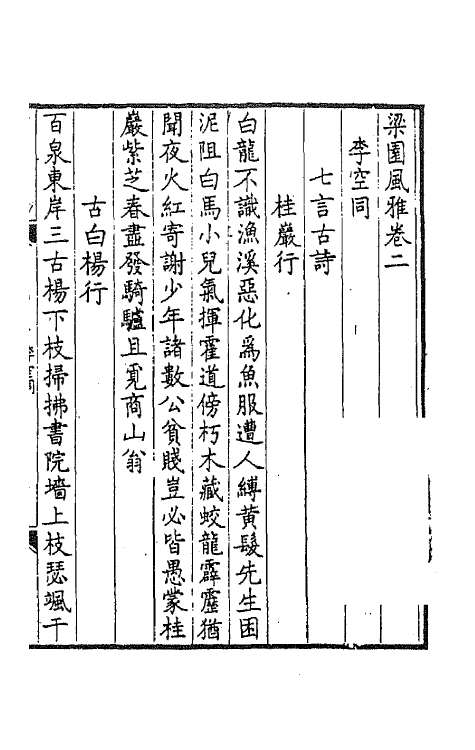 梁園風雅卷二
李空同
七言古詩
桂巖行
白龍不識漁溪惡化爲魚服遭人縛黃髮先生困
泥阻白馬小兒氣揮霍道傍朽木藏蛟龍霹靂猶
聞夜火紅寄謝少年諸數公貧賤豈必皆愚蒙桂
巖紫芝春盡發騎驢且覓商山翁
古白楊行
百泉東岸三古楊下枝掃拂書院墻上枝瑟颯干